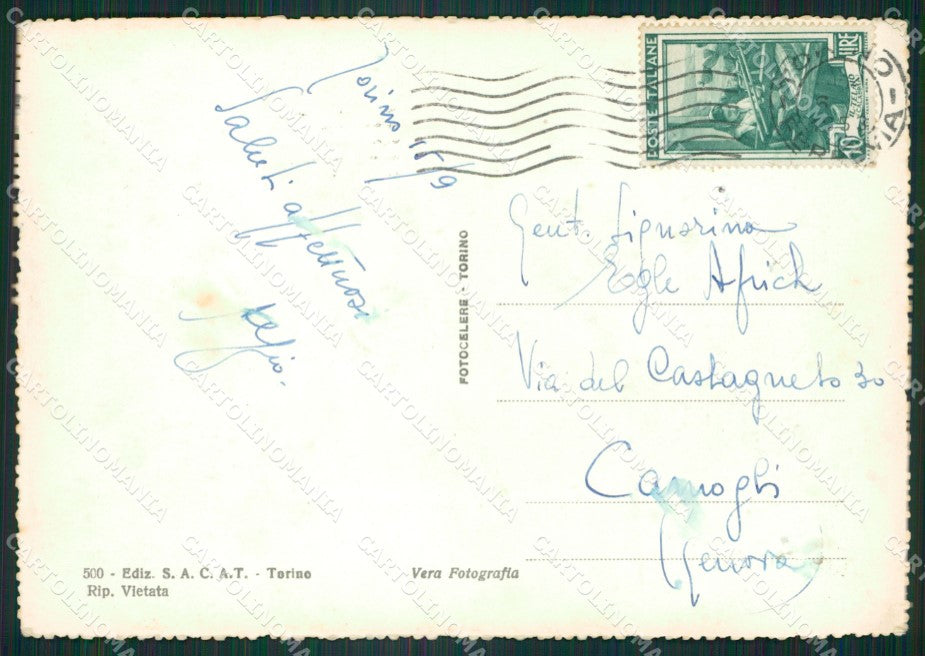 Torino 15/9
Saluti affettuosi
POSTE ITALIANE
10 LIRE
FOTOCELERE - TORINO
Gent. Signorina
Egle Africh
Via del Castagneto 30
Camoghi
(Genova)
500 - Ediz. S. A. C. A. T. - Torino
Rip. Vietata
Vera Fotografia
CARTOLINOMANIA